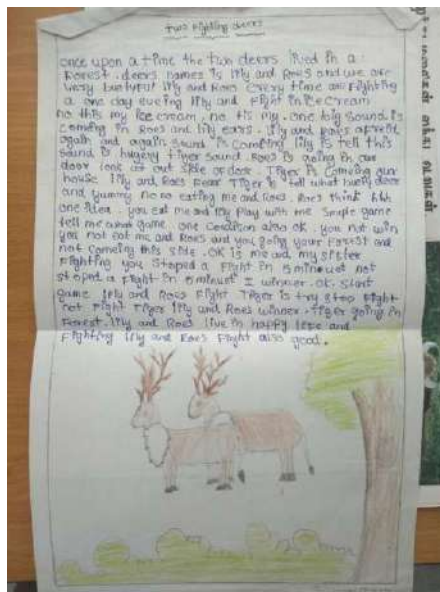 two Fighting deers
once upon a time the two deers lived in a
Forest. deers names is lily and Roes and we are
very butyful lily and Roes Every time are Fighting
a one day eveing lily and Fight in icecream
no this my ice cream. no its my. one big sound is
comeing in Roes and lily ears. lily and Roes afreid
again and again sound is comeing lily is tell this
sound is hugery tiger sound. Roes is going in our
door look at out side of door. Tiger is comeing our
house lily and Roes Fear Tiger is tell what buety deer
and yummy no no eating me and Roes. Roes think hhh
one idea. you eat me and lily Play with me simple game
tell me what game. one condison also ok. you not win
you not eat me and Roes and you going your Forest and
not comeing this side. OK is me and my sister
Fighting you stoped a Fight in 5 minuet not
stoped a Fight in 5 minuet I winner. OK start
game lily and Roes Fight Tiger is try stop Fight
not Fight Tiger lily and Roes winner. tiger going in
Forest. lily and Roes live in happy life and
Fighting lily and Roes Fight also good.